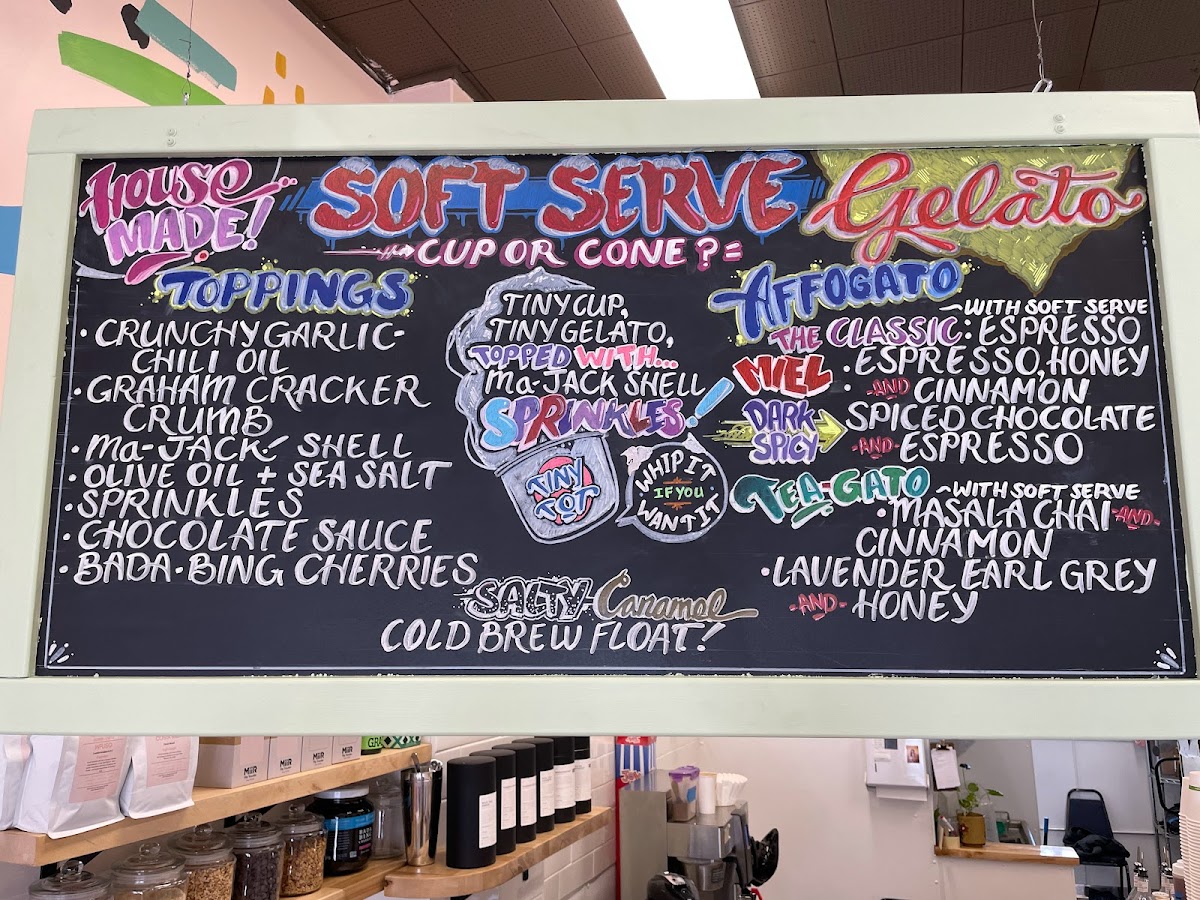 HOUSE
MADE!
SOFT SERVE Gelato
CUP OR CONE? =
TOPPINGS
• CRUNCHY GARLIC-
CHILI OIL
• GRAHAM CRACKER
CRUMB
• Ma-JACK SHELL
• OLIVE OIL + SEA SALT
• SPRINKLES
• CHOCOLATE SAUCE
• BADA-BING CHERRIES
TINY CUP,
TINY GELATO,
TOPPED WITH...
Ma-JACK SHELL
SPRINKLES!
TINY
TOT
WHIP IT
IF YOU
WANT IT
SALTY Caramel
COLD BREW FLOAT!
AFFOGATO
~WITH SOFT SERVE
THE CLASSIC: ESPRESSO
MIEL : ESPRESSO, HONEY
-AND- CINNAMON
DARK
SPICY
SPICED CHOCOLATE
-AND- ESPRESSO
TEA-GATO
~WITH SOFT SERVE
• MASALA CHAI -AND-
CINNAMON
• LAVENDER EARL GREY
-AND- HONEY
MiiR
MiiR
MiiR
MiiR